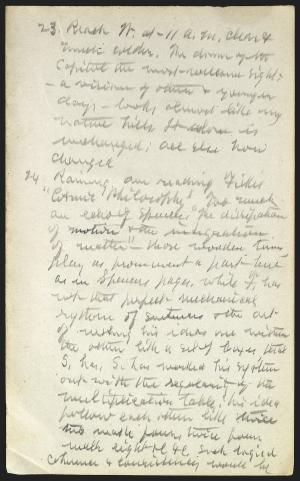 23. Reach W. at 11 A.M. clear &
much colder. The dome of the
Capitol the most welcome sight
- a vision of other & younger
days - looks almost like my
native hills. It alone is
unchanged; all else how
changed.
24 Raining, am reading Fiske's
"Cosmic Philosophy" Too much
an echo of Spencer. The dissipation
of motion & the integration
of matter" - those wooden terms
play as prominent a part here
as in Spencers pages, while F. has
not that perfect mechanical
system of sentences & the art
of nesting his ideas one within
the other like a set of boxes that
S. has. S. has worked his system
out with the regularity of the
multiplication table; his ideas
follow each other like twice
two make four, twice four
make eight &c &c. Such logical
coherence & consistency would be